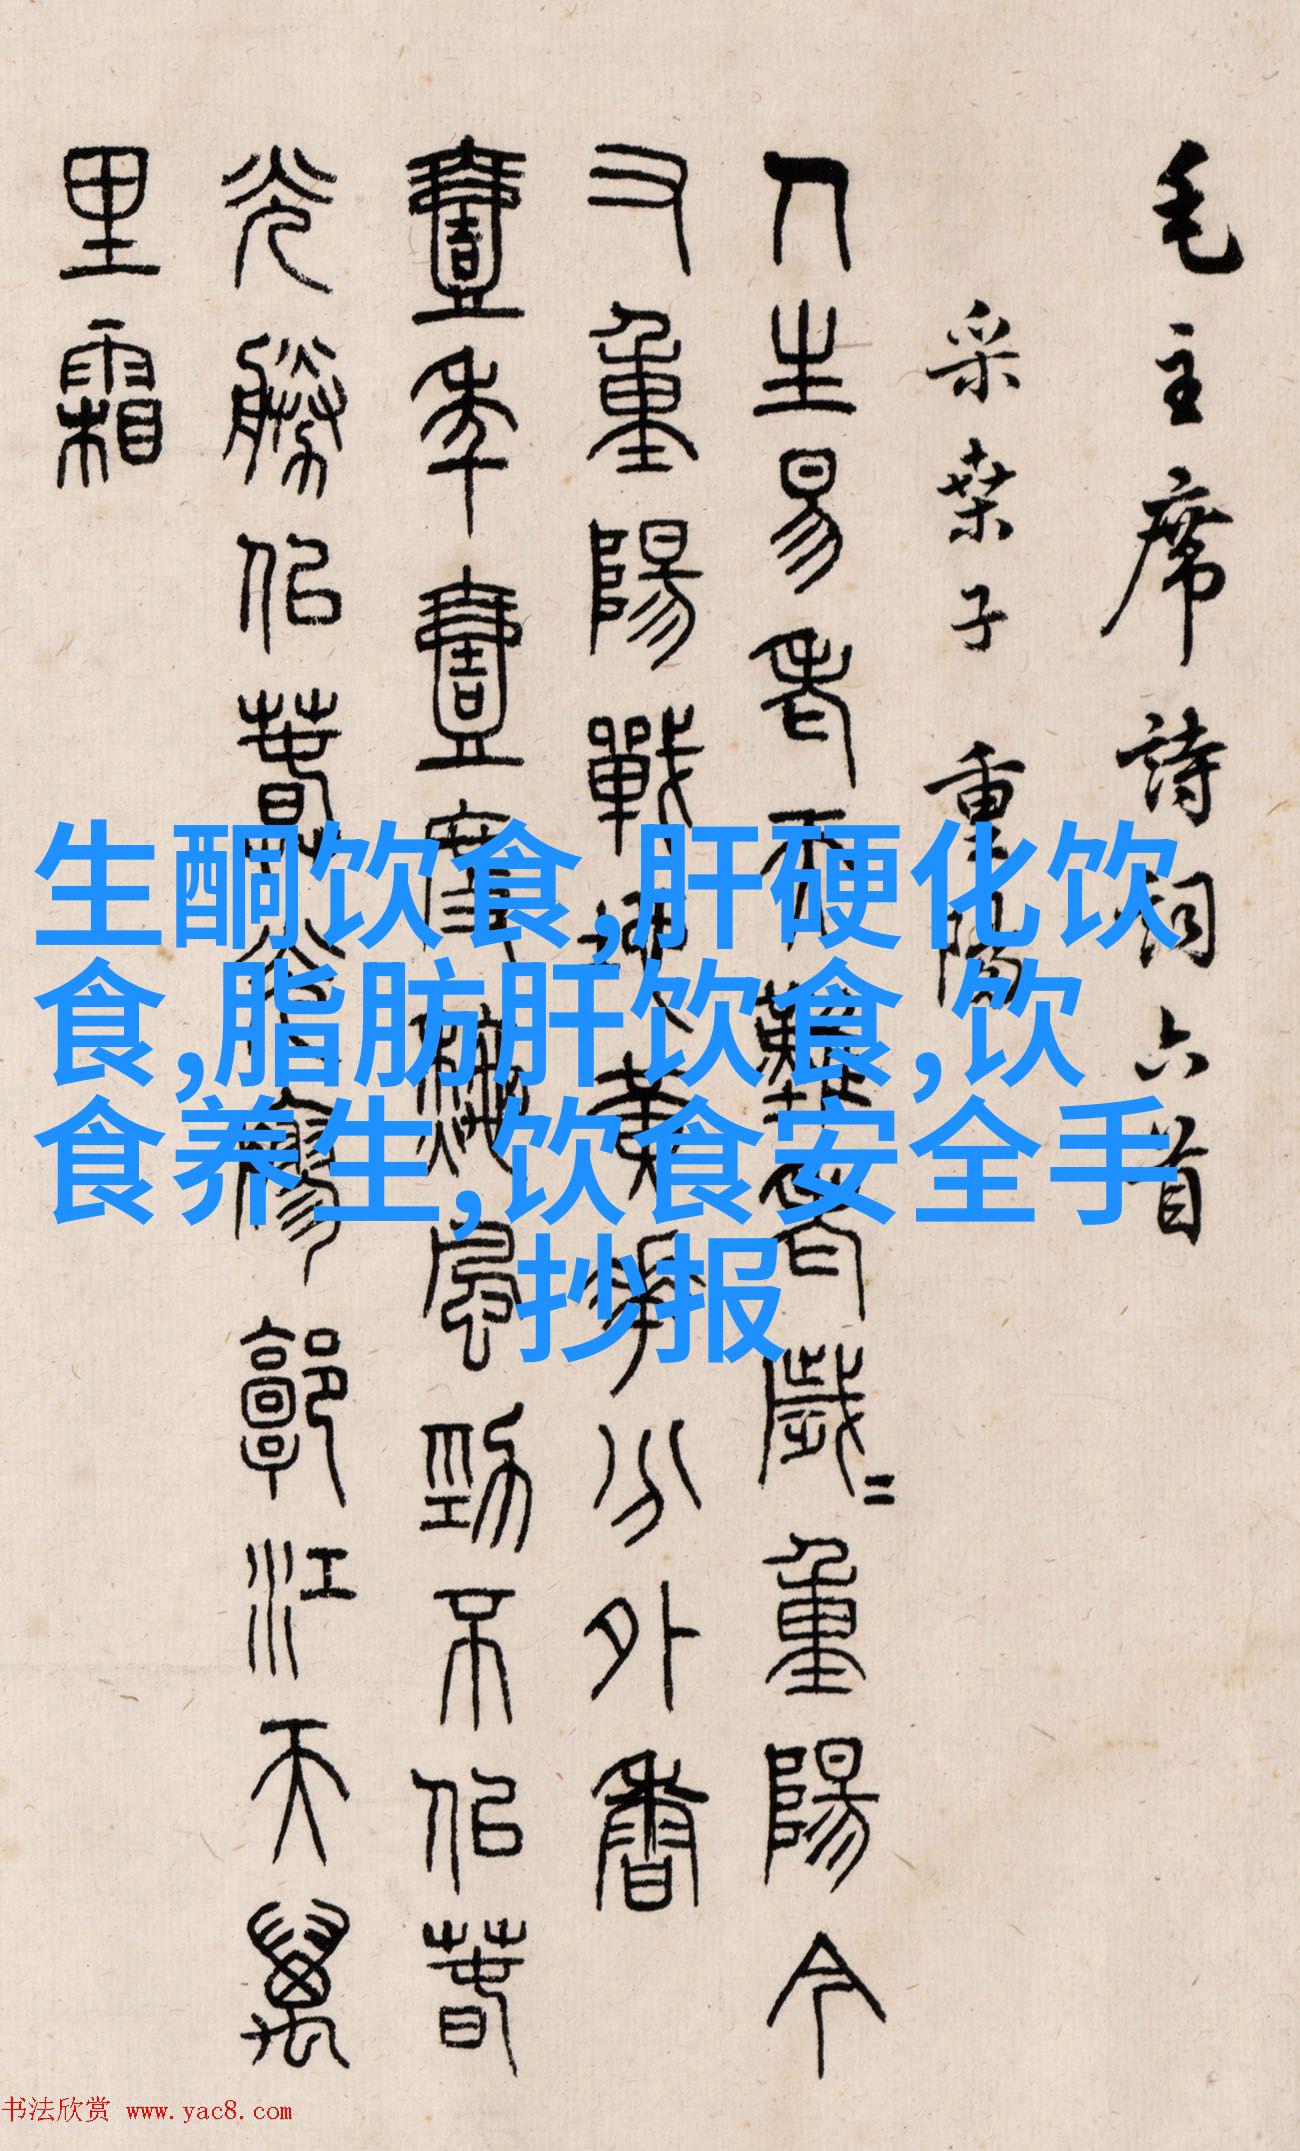 毛主席詩詞六首
采桑子 重陽
人生易老天難老歲=重陽今
又重陽戰地黃花分外香
壹年壹度秋風勁不似春
光勝似春光寥廓江天萬
里霜
生酮饮食,肝硬化饮
食,脂肪肝饮食,饮
食养生,饮食安全手
抄报
书法欣赏 www.yac8.com